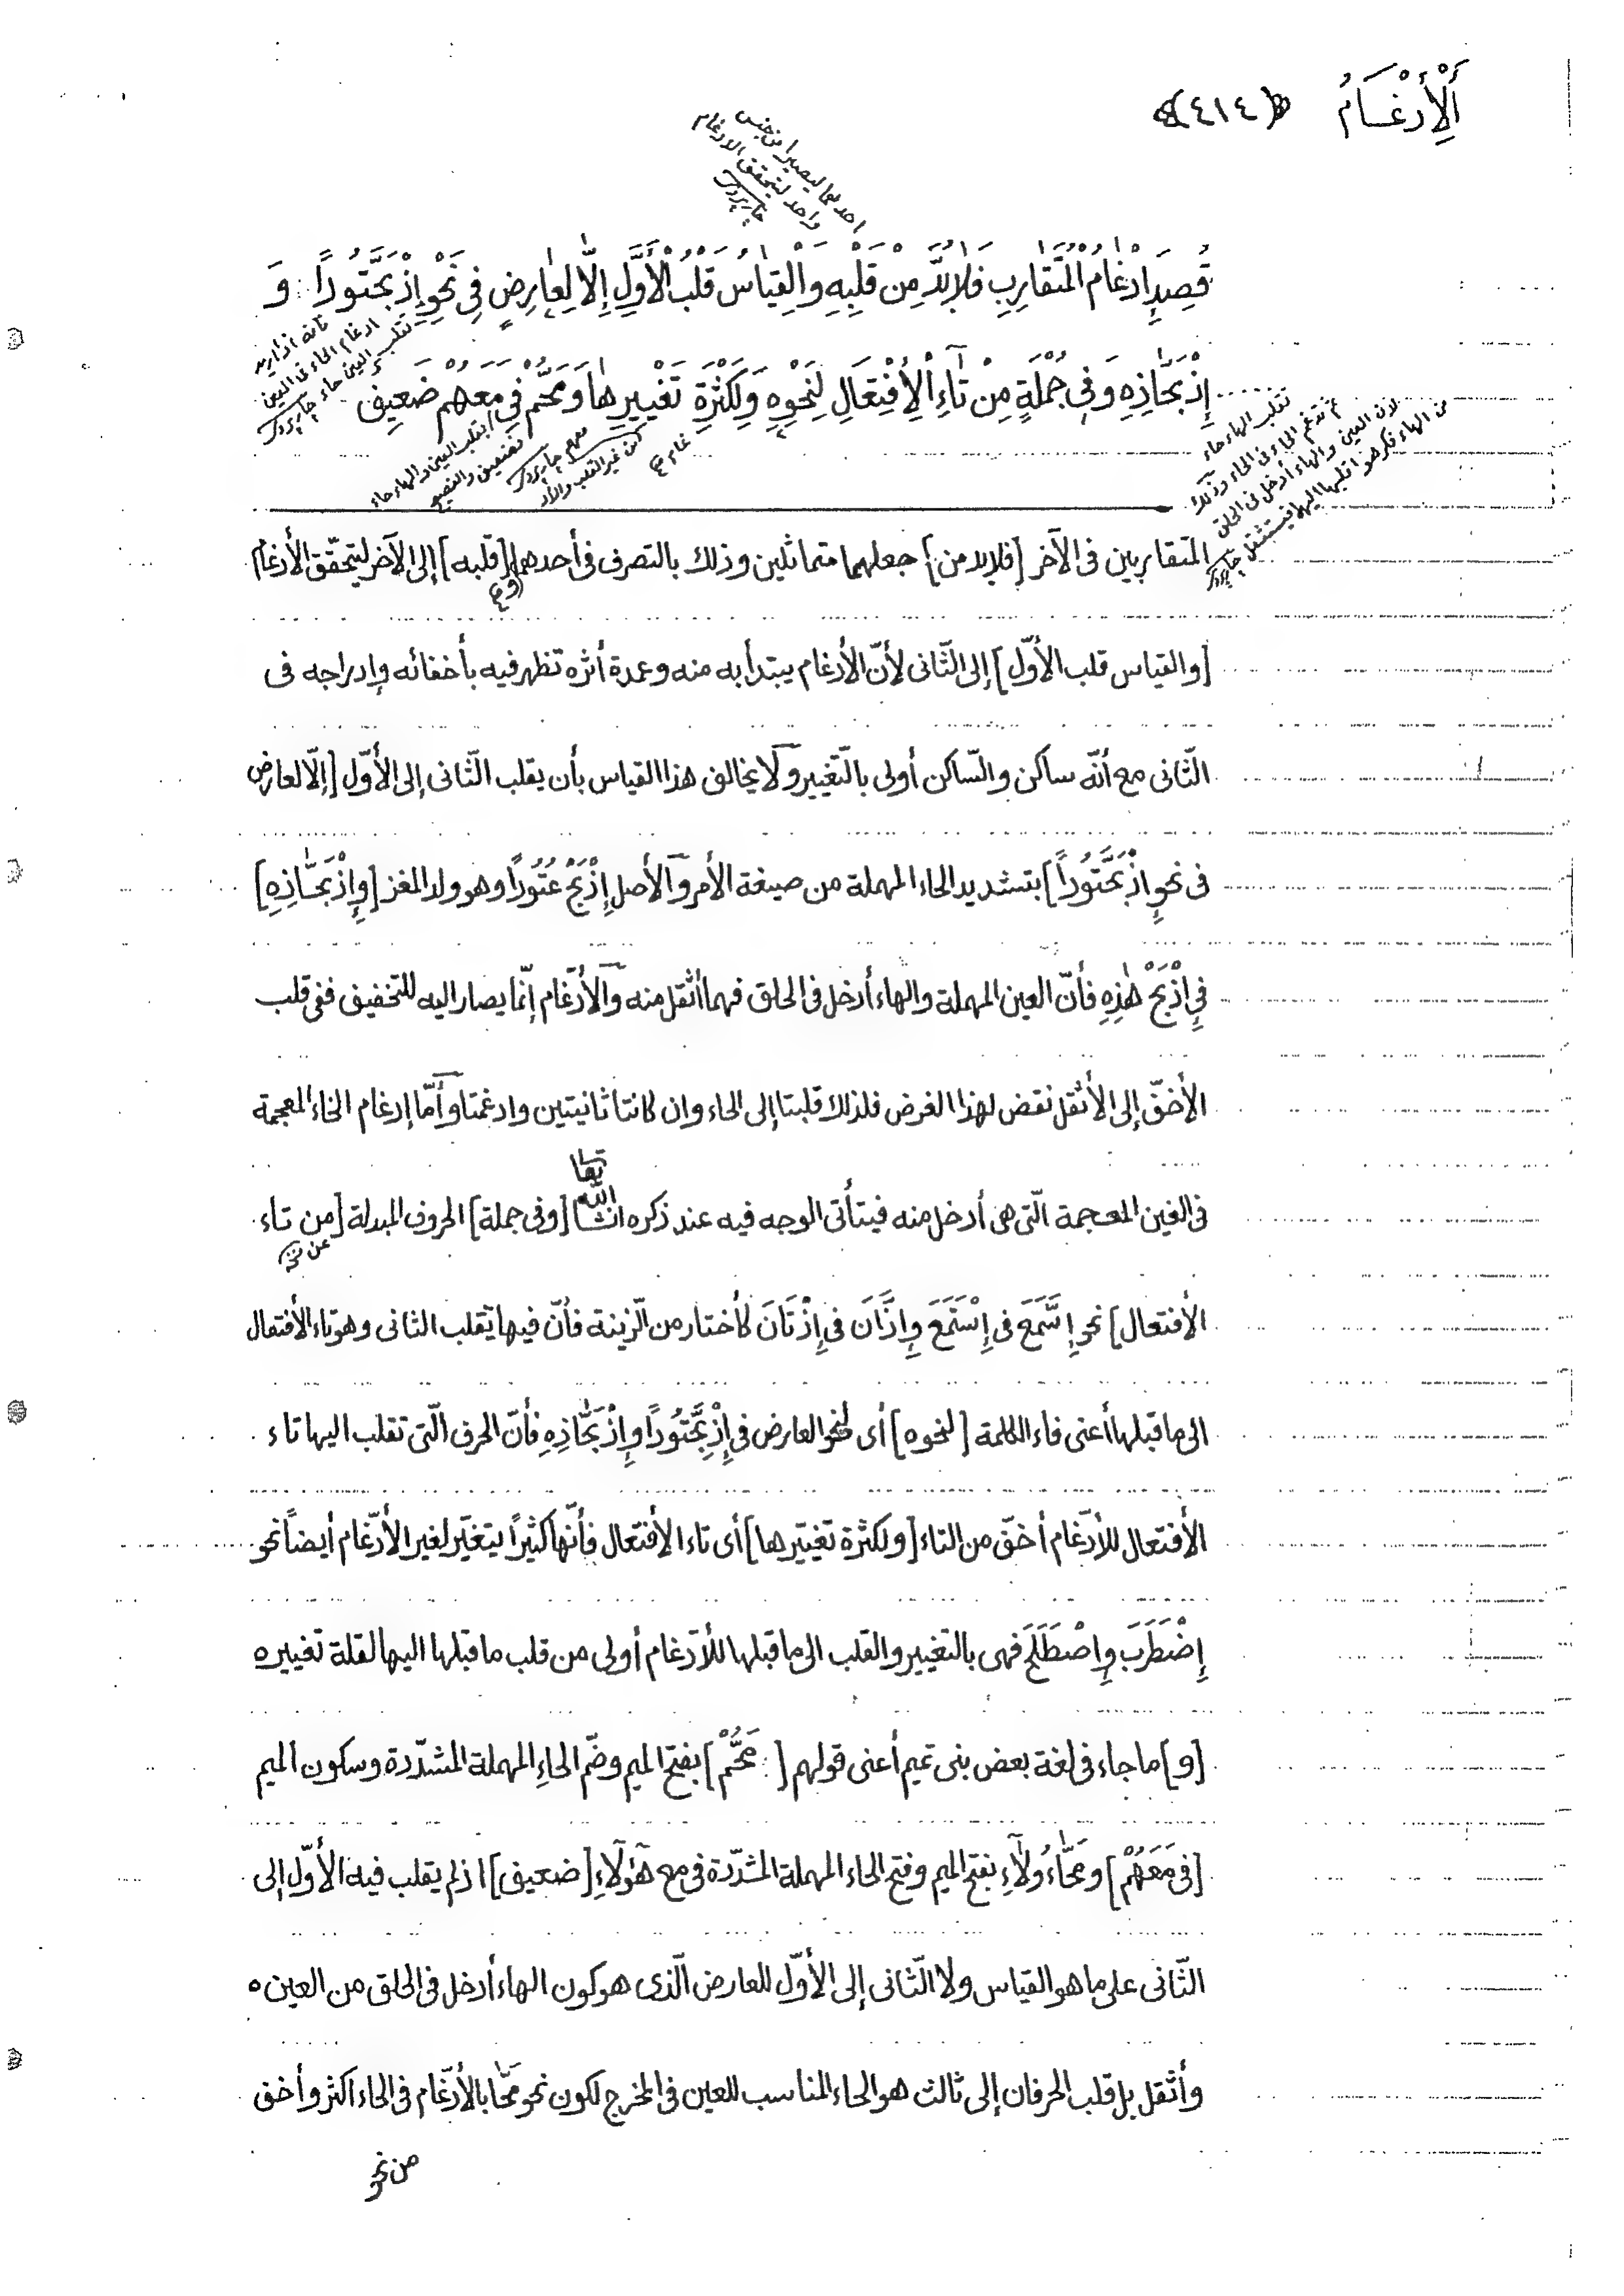 اَلْأِدْغَامُ ﴿٤١٤﴾
احدهما ليصيرا من جنس
واحد ليتحقق الادغام
جاربردى
قُصِدَ إِدْغَامُ الْمُتَقَارِبِ فَلَابُدَّ مِنْ قَلْبِهِ وَالْقِيَاسُ قَلْبُ الْأَوَّلِ إِلَّا لِعَارِضٍ فِي نَحْوِ إِذْبَحَّتُودًا وَ
إِذْبَحَّاذِهِ وَفِي جُمْلَةٍ مِنْ تَاءِ الْأِفْتِعَالِ لِنَحْوِهِ وَلِكَثْرَةِ تَغْيِيرِهَا وَمَحُّمْ فِي مَعَهُمْ ضَعِيفٌ
فانه اذا اريد
ادغام الحاء فى العين
تقلب العين حاء جاربردى
تقلب الهاء حاء
ثم تدغم الحاء فى الحاء وذلك
لان العين والهاء أدخل فى الحلق
من الهاء فكرهوا قلبها اليهما فيستثقل جاربردى
بقلب العين والهاء حاء
معهم جاربردى
من غير القلب والأد
غام ع
المتقاربين فى الآخر [فلابد من] جعلهما متماثلين وذلك بالتصرف فى أحدهما [قلبه] إلى الآخر ليتحقّق الأدغام
[والقياس قلب الأوّل] إلى الثّانى لأنّ الأدغام يبتدأ به منه وعمدة أثره تظهر فيه بأخفائه وإدراجه فى
الثّانى مع أنّه ساكن والسّاكن أولى بالتّغيير ولا يخالف هذا القياس بأن يقلب الثّانى إلى الأوّل [إلّا لعارض
فى نحو إِذْبَحَّتُودًا] بتشديد الحاء المهملة من صيغة الأمر والأصل إِذْبَحْ عَتُودًا وهو ولد المعز [وإِذْبَحَّاذِهِ]
فى إِذْبَحْ هٰذِهِ فأنّ العين المهملة والهاء أدخل فى الحلق فهما أثقل منه والأدّغام إنّما يصار اليه للتخفيف ففى قلب
الأخفّ إلى الأثقل نقض لهذا الغرض فلذلك قلبتا إلى الحاء وان كانتا ثانيتين وادغمتا وأمّا إدغام الخاء المعجمة
فى الغين المعجمة الّتى هى أدخل منه فيتأتى الوجه فيه عند ذكره انشا الله تعا [وفى جملة] الحروف المبدلة [من تاء
عن نخ
الأفتعال] نحو إِسَّمَعَ فى إِسْتَمَعَ وإِزَّانَ فى إِزْتَانَ كأختار من الزّينة فأنّ فيها تقلب الثانى وهو تاء الأفتعال
الى ما قبلها أعنى فاء الكلمة [لنحوه] أى لنحو العارض فى إِذْبَحَّتُودًا وإِذْبَحَّاذِهِ فأنّ الحرف الّتى تقلب اليها تاء
الأفتعال للأدّغام أخفّ من التاء [ولكثرة تغيّيرها] أى تاء الأفتعال فأنّها كثيرًا يتغيّر لغير الأدّغام أيضاً نحو
إِضْطَرَبَ وإِصْطَلَحَ فهى بالتغيير والقلب الى ما قبلها للأدّغام أولى من قلب ما قبلها اليها لقلة تغييره
[و] ما جاء فى لغة بعض بنى تميم أعنى قولهم [مَحُّمْ] بفتح الميم وضّم الحاءِ المهملة المشدّدة وسكون الميم
[فى مَعَهُمْ] ومَحَّاؤُلَاءِ بفتح الميم وفتح الحاء المهملة المشدّدة فى مع هٰؤلَاءِ [ضعيف] اذ لم يقلب فيه الأوّل إلى
الثّانى على ما هو القياس ولا الثّانى إلى الأوّل للعارض الّذى هو كون الهاء أدخل فى الحلق من العين
وأثقل بل قلب الحرفان إلى ثالث هو الحاء المناسب للعين فى المخرج لكون نحو مَحَّا بالأدّغام فى الحاء اكثر وأخف
من نحو